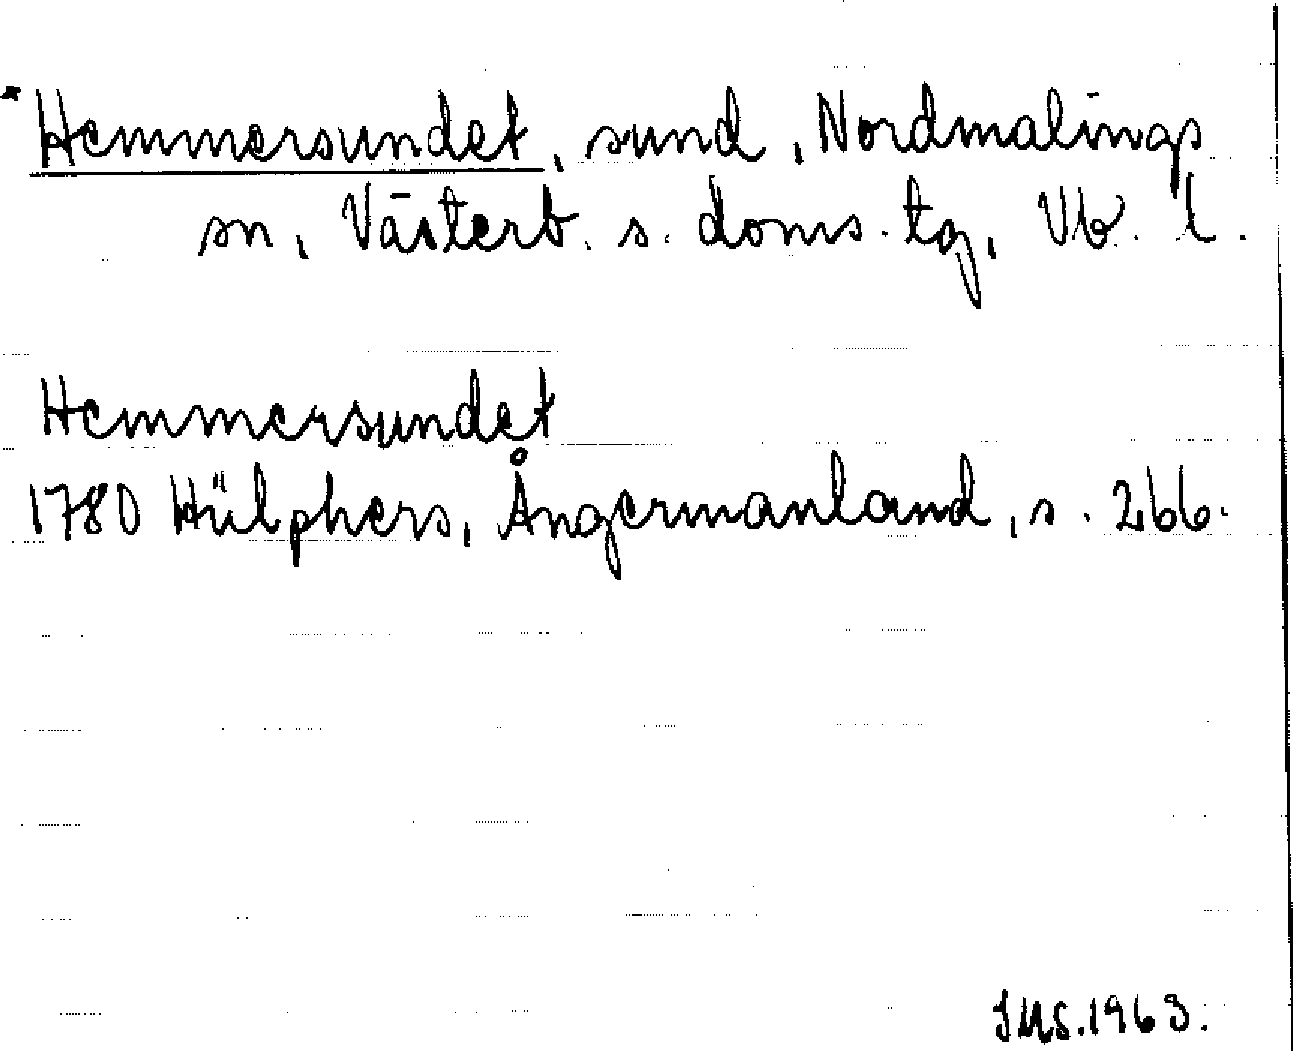 *Hemmersundet, sund, Nordmalings
sn, Västerb. s. doms. tg, Vb. l.
Hemmersundet
1780 Hülphers, Ångermanland, s. 266.
IMS. 1963.